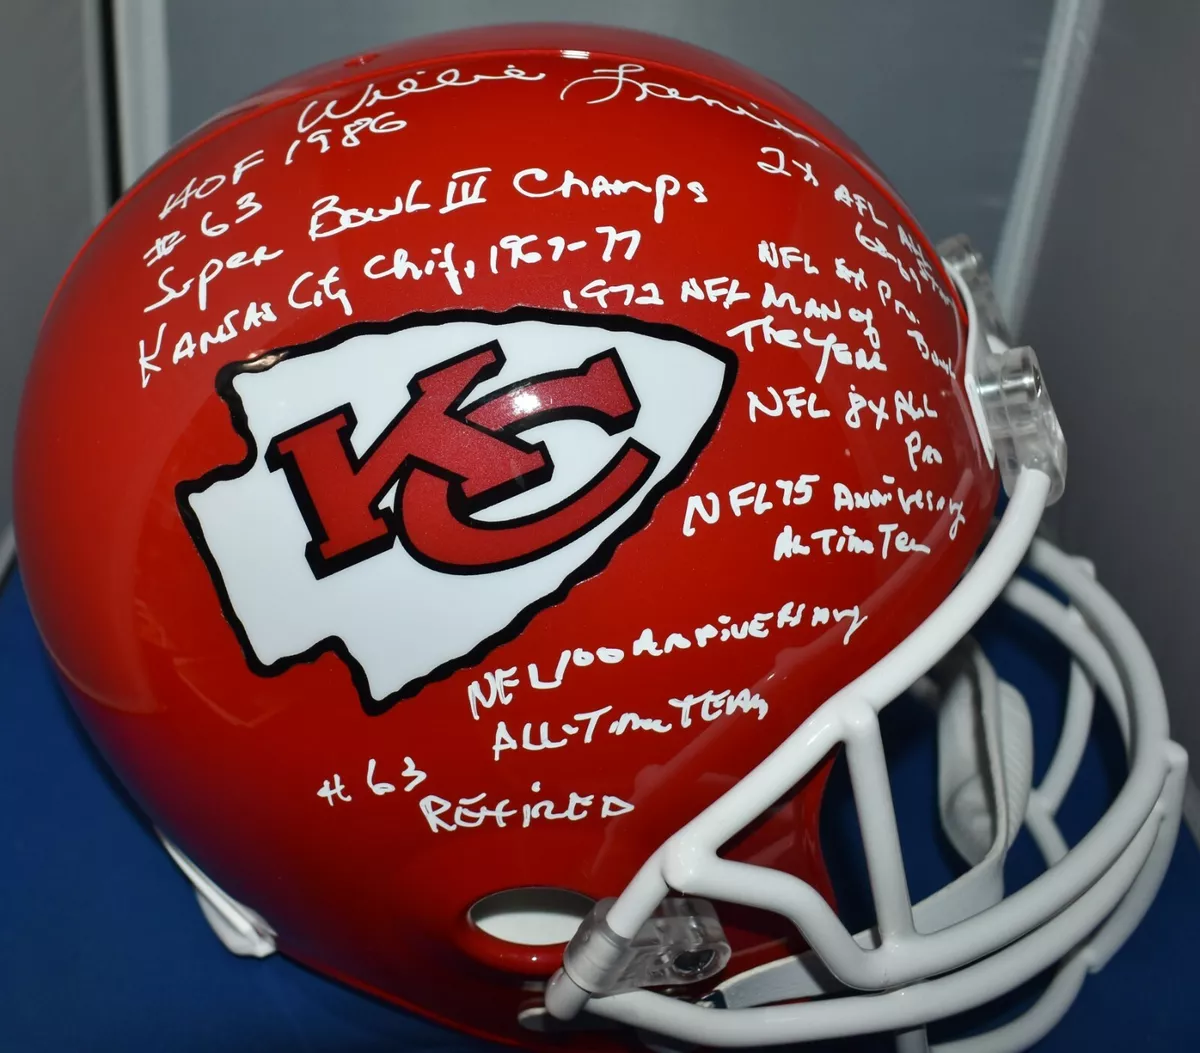 Willie Lanier
HOF 1986
#63
Super Bowl IV Champs
Kansas City Chiefs, 1967-77
2x AFL All
NFL 6x Pro
Bowl
1972 NFL Man of
The Year
NFL 8x All
Pro
NFL 75 Anniversary
All Time Team
NFL 100 Anniversary
All-Time Team
#63
Retired
KC